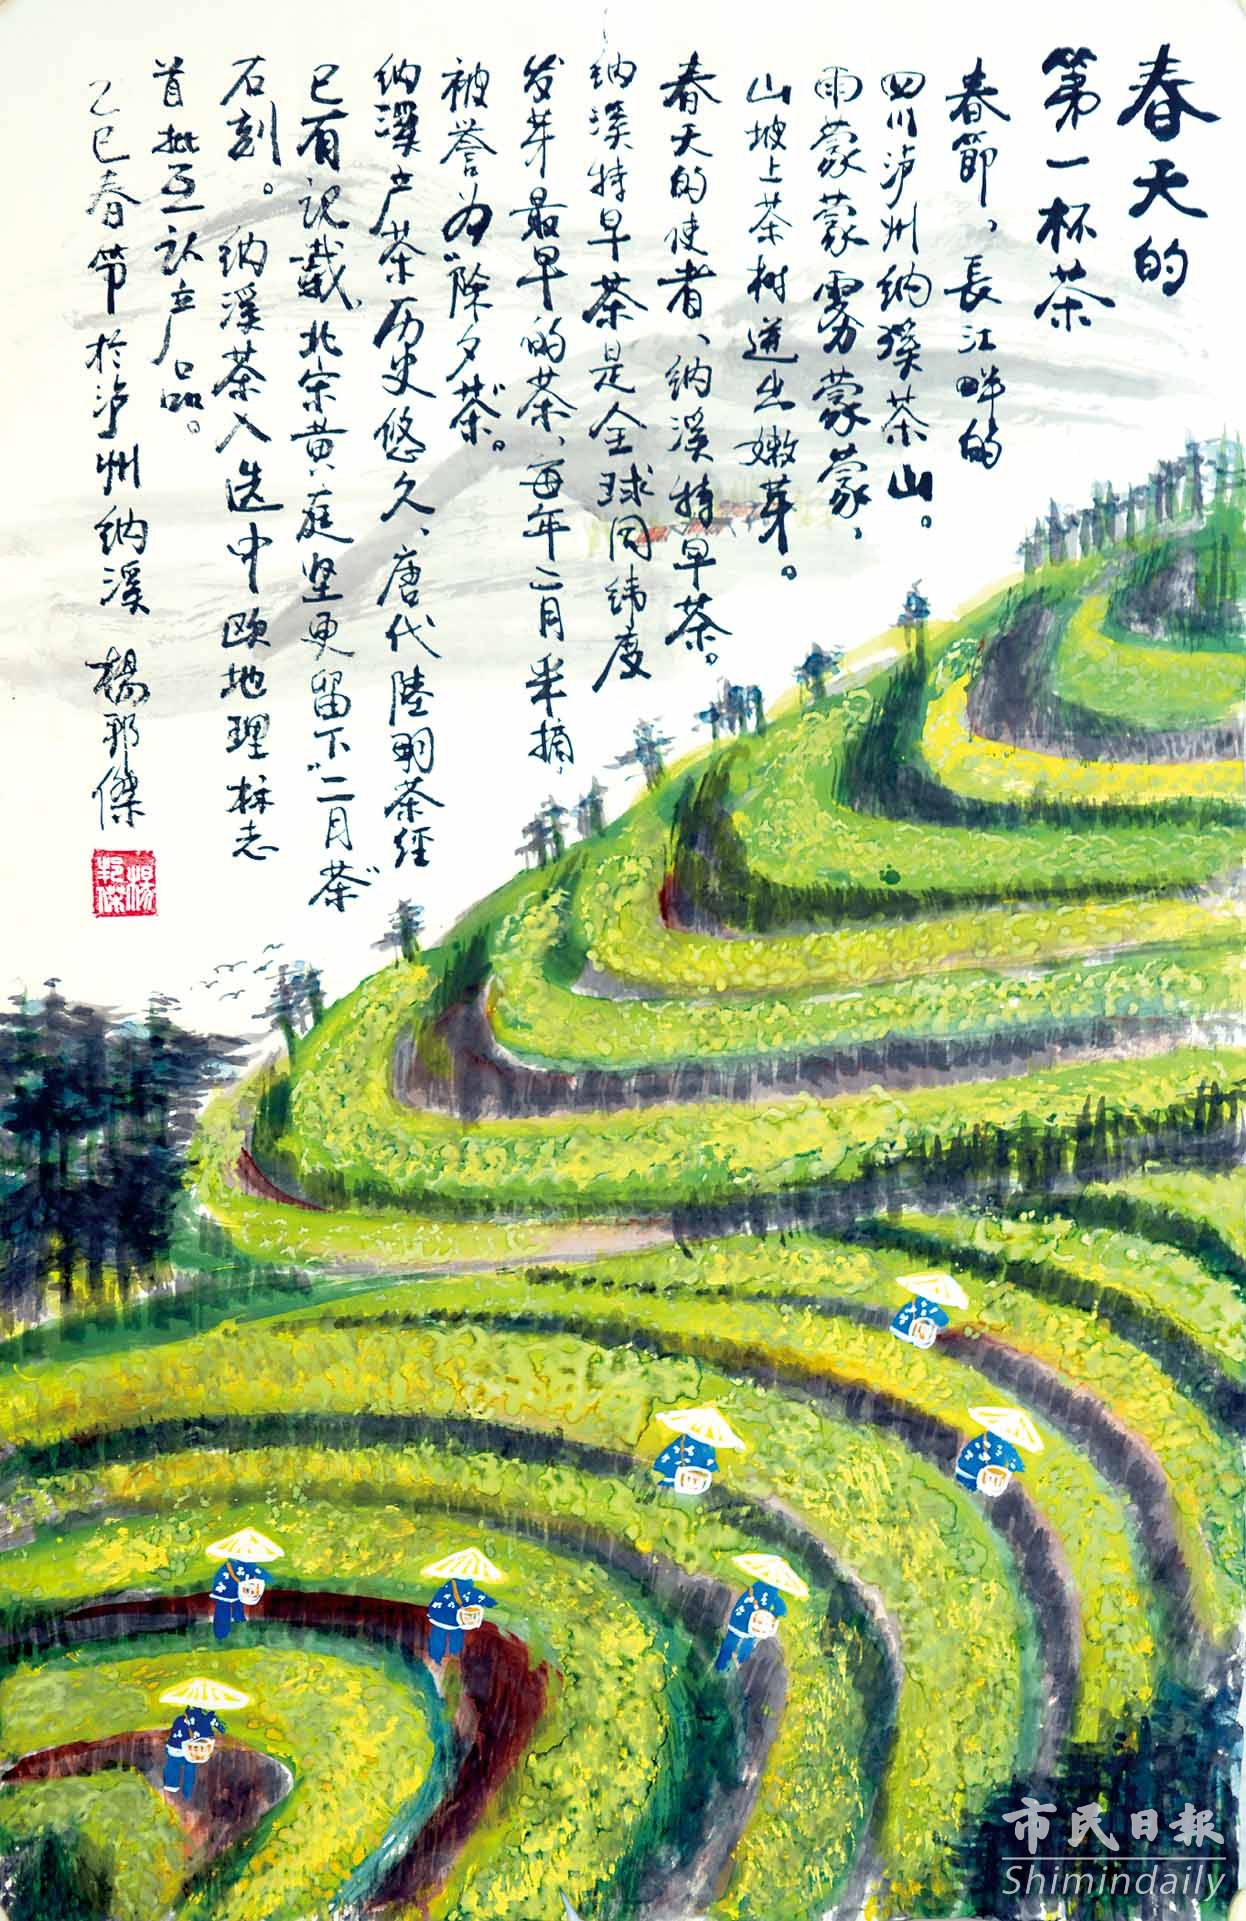 春天的
第一杯茶
春節，長江畔的
四川泸州纳溪茶山。
雨蒙蒙雾蒙蒙，
山坡上茶树迸出嫩芽。
春天的使者、纳溪特早茶。
纳溪特早茶是全球同纬度
发芽最早的茶、每年二月采摘，
被誉为“除夕茶”。
纳溪产茶历史悠久、唐代陸羽茶經
已有记載，北宋黄庭坚更留下“二月茶”
石刻。纳溪茶入选中欧地理标志
首批互认产品。
乙巳春节於泸州纳溪 楊邦傑
楊邦傑
市民日報
Shimindaily